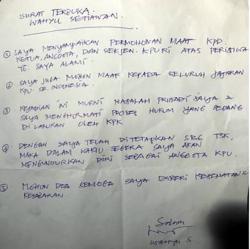 SURAT TERBUKA.
WAHYU SETIAWAN.
① SAYA MENYAMPAIKAN PERMOHONAN MAAF KPD.
KETUA, ANGGOTA, DAN SEKJEN KPU RI ATAS PERISTIWA
YG SAYA ALAMI.
② SAYA JUGA MOHON MAAF KEPADA SELURUH JAJARAN
KPU SE INDONESIA.
③ KEJADIAN INI MURNI MASALAH PRIBADI SAYA &
SAYA MENGHORMATI PROSES HUKUM YANG SEDANG
DI LAKUKAN OLEH KPK
④ DENGAN SAYA TELAH DITETAPKAN SBG TSK.
MAKA DALAM WAKTU SEGERA SAYA AKAN
MENGUNDURKAN DIRI SEBAGAI ANGGOTA KPU.
⑤ MOHON DOA SEMOGA SAYA DIBERI KESEHATAN &
KESABARAN
Salam
Wahyu S